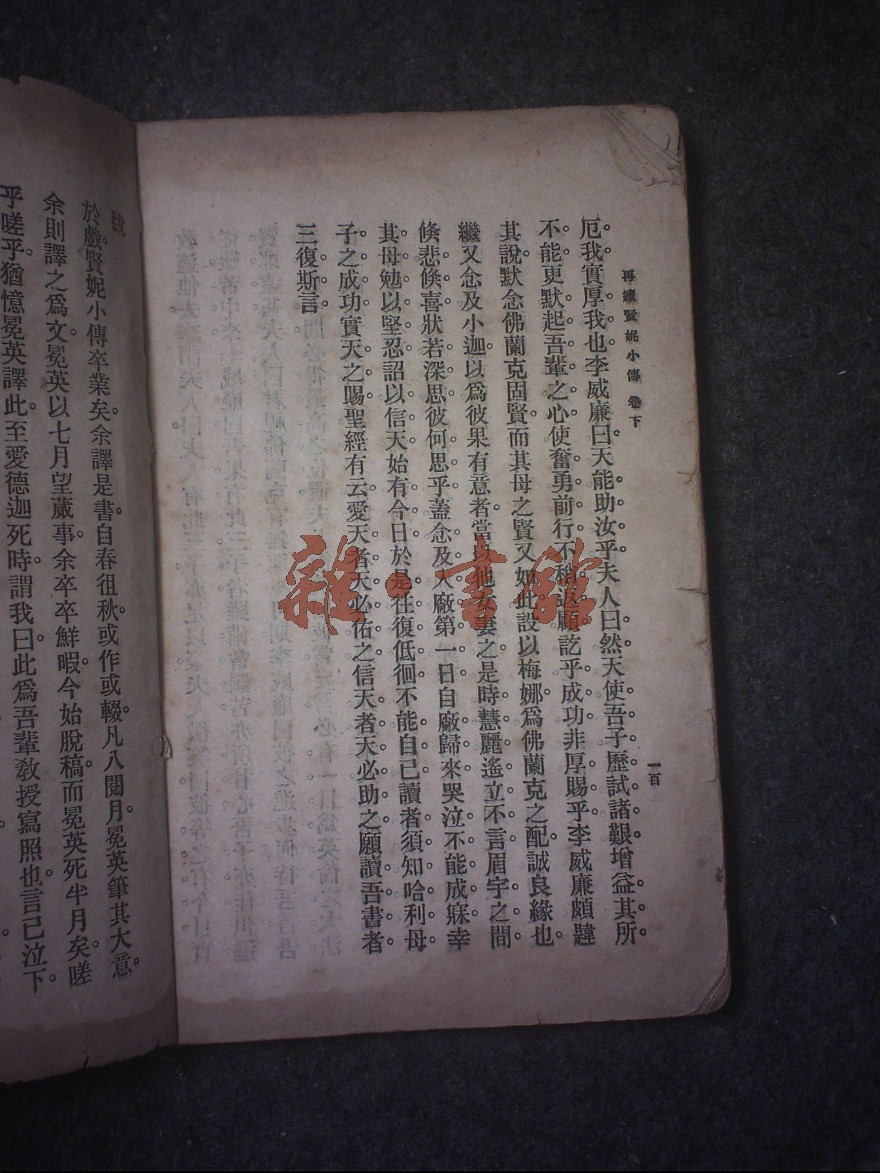 再續賢妮小傳 卷下
一百
厄。我實厚我也李威廉曰天能助汝乎夫人曰然天使吾子歷試諸艱增益其所
不能更默起吾輩之心使奮勇前行不稍退顧訖乎成功非厚賜乎李威廉頗韙
其說默念佛蘭克固賢而其母之賢又如此設以梅娜爲佛蘭克之配誠良緣也。
繼又念及小迦以爲彼果有意者當以他女妻之是時慧麗遙立不言眉宇之間
倏悲倏喜狀若深思彼何思乎蓋念及入廠第一日自廠歸來哭泣不能成寐幸
其母勉以堅忍詔以信天始有今日於是往復低徊不能自已讀者須知哈利母
子之成功實天之賜聖經有云愛天者天必佑之信天者天必助之願讀吾書者
三復斯言
跋
於戲賢妮小傳卒業矣余譯是書自春徂秋或作或輟凡八閱月冕英筆其大意。
余則譯之爲文冕英以七月望蕆事余卒卒鮮暇今始脫稿而冕英死半月矣嗟
乎嗟乎猶憶冕英譯此至愛德迦死時謂我曰此爲吾輩敎授寫照也言已泣下
雜·書館